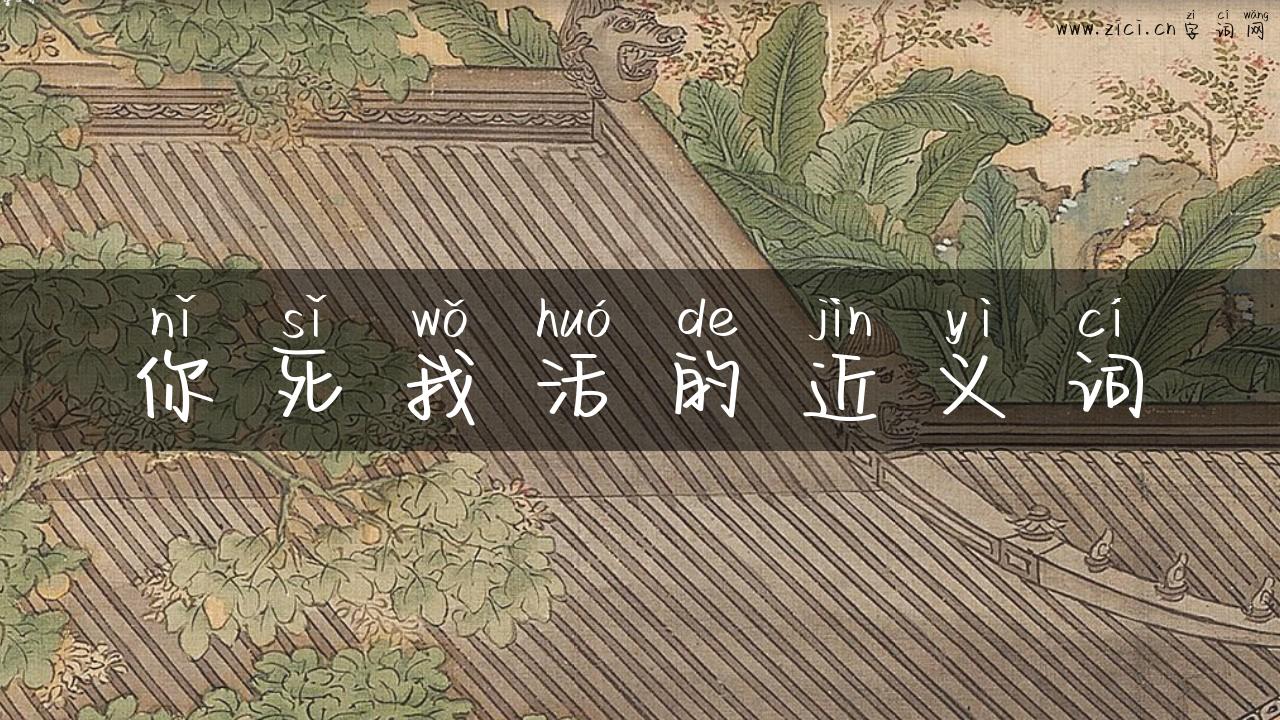 zì cí wǎng
www.zici.cn 字词网
nǐ sǐ wǒ huó de jìn yì cí
你死我活的近义词